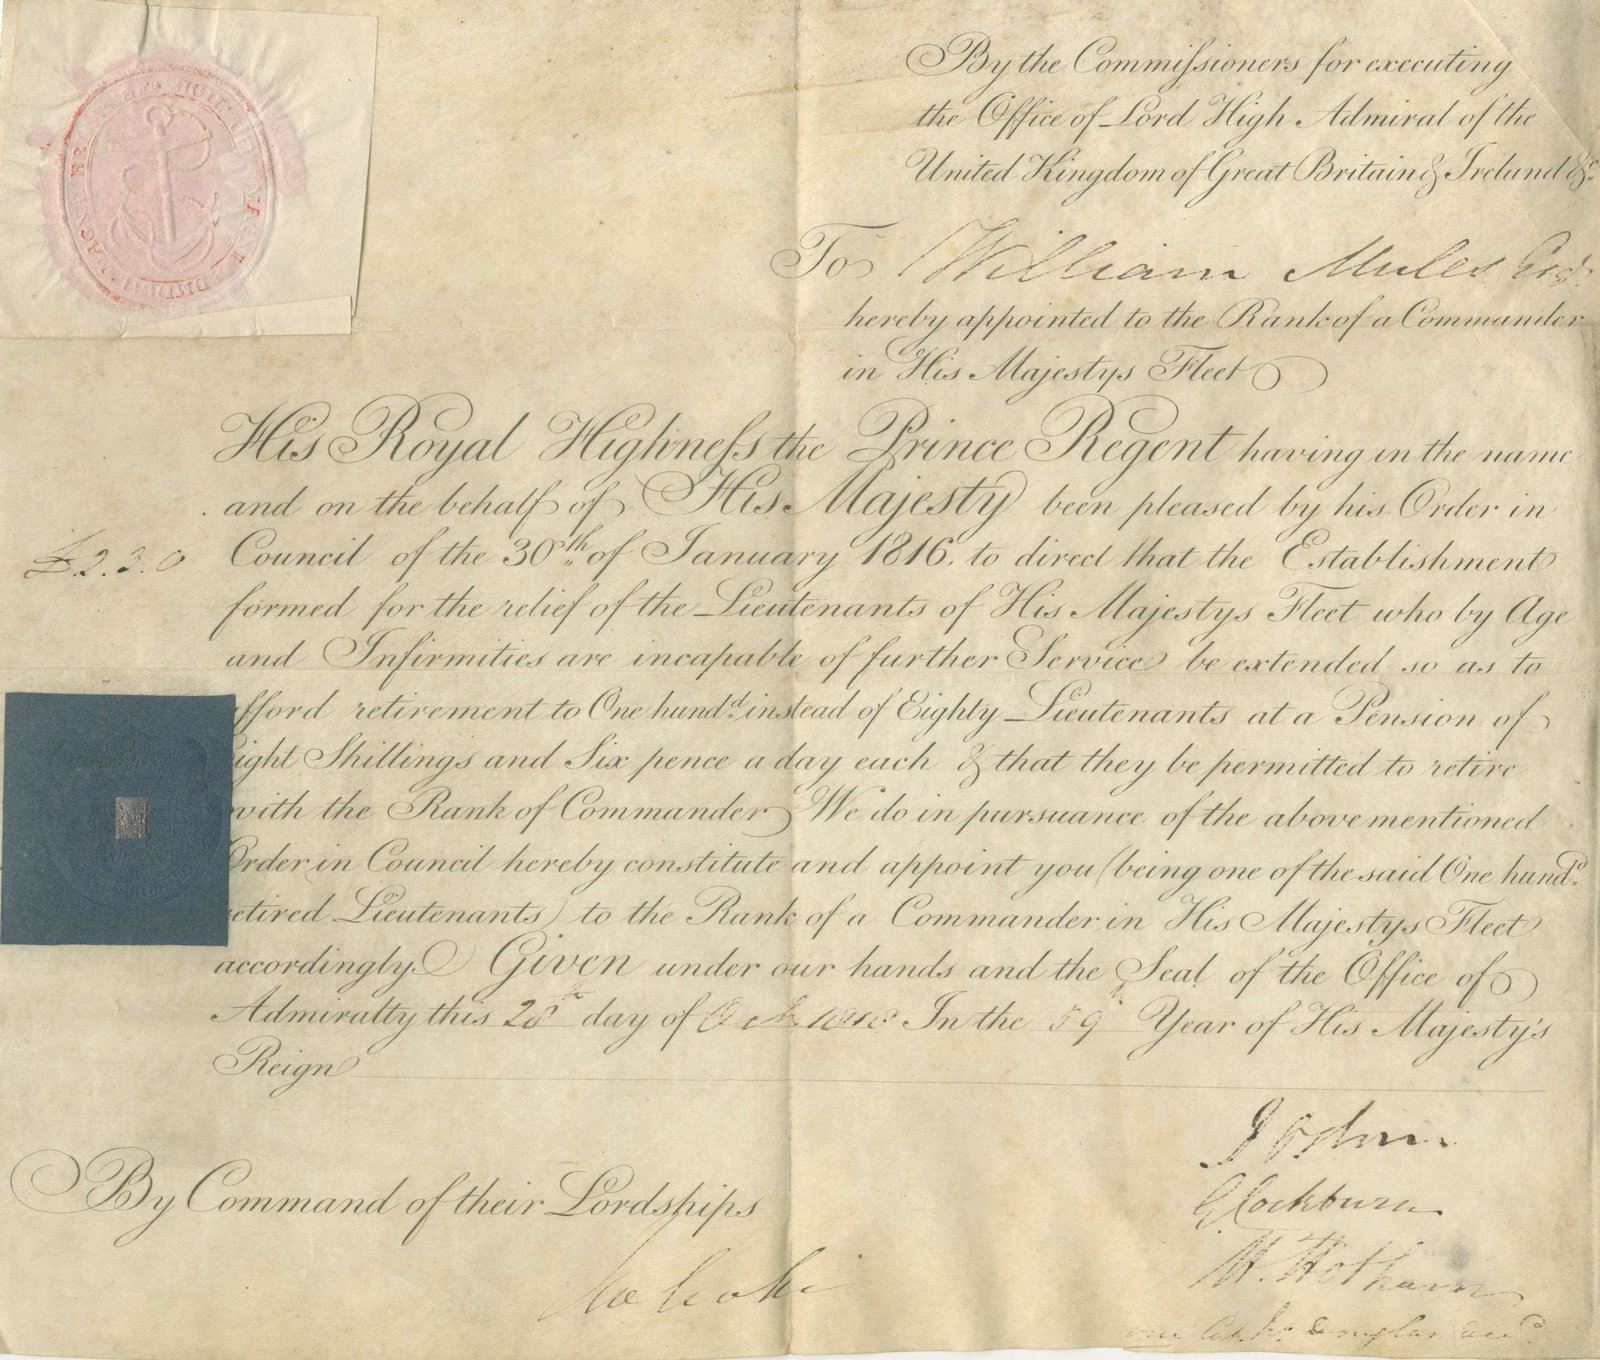 By the Commissioners for executing
the Office of Lord High Admiral of the
United Kingdom of Great Britain & Ireland &c.
To William Mules Esqr.
hereby appointed to the Rank of a Commander
in His Majestys Fleet
His Royal Highness the Prince Regent having in the name
and on the behalf of His Majesty been pleased by his Order in
£2.3.0
Council of the 30th of January 1816. to direct that the Establishment
formed for the relief of the Lieutenants of His Majestys Fleet who by Age
and Infirmities are incapable of further Service be extended so as to
afford retirement to One hundd. instead of Eighty Lieutenants at a Pension of
Eight Shillings and Six pence a day each & that they be permitted to retire
with the Rank of Commander We do in pursuance of the abovementioned
Order in Council hereby constitute and appoint you (being one of the said One hundd.
retired Lieutenants) to the Rank of a Commander in His Majestys Fleet
accordingly. Given under our hands and the Seal of the Office of
Admiralty this day of 1818 In the 59 Year of His Majesty's
Reign
G Cockburn
By Command of their Lordships
H. Hotham
Douglas